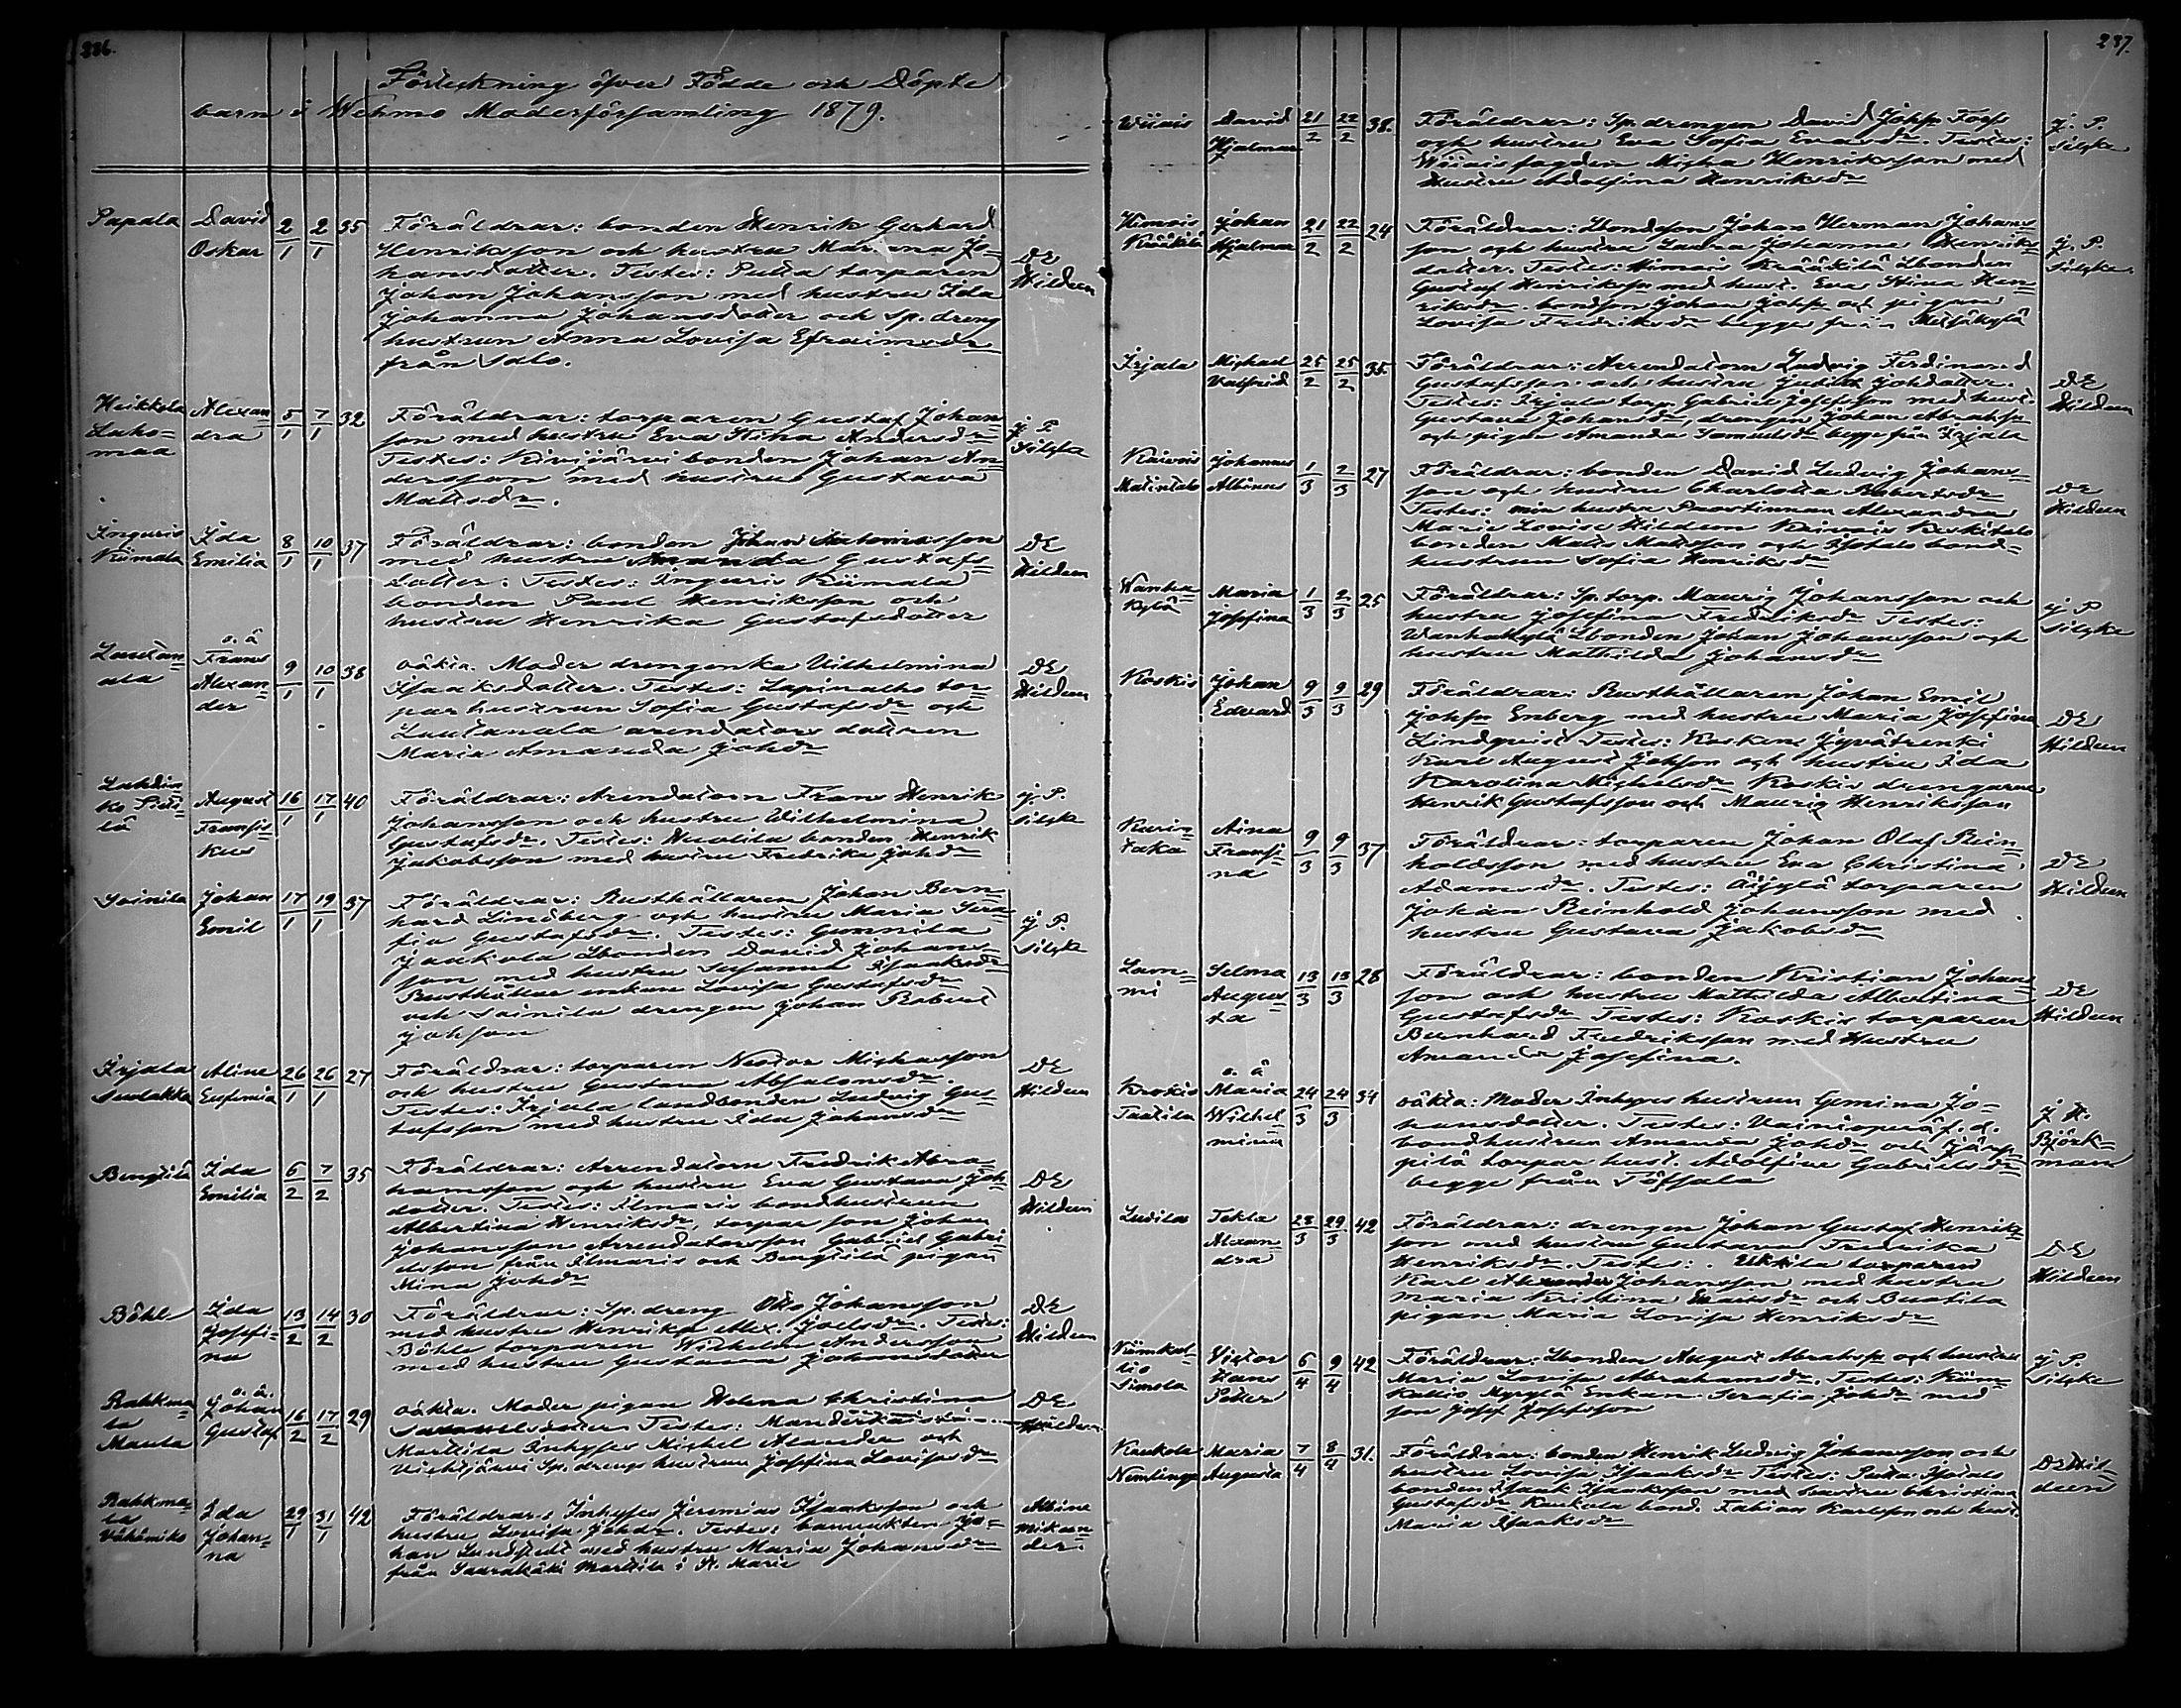 236.
Förteckning öfver Födde och Döpte
barn i Wehmo Moderförsamling 1879.
Papala David Oskar 2/1 2/1 35
Föräldrar: bonden Henrik Gerhard
Henriksson och hustru Marina Jo-
hansdotter. Testes: Putta torparen
Johan Johansson med hustru Ida
Johanna Johansdotter och sp. dreng
hustrun Anna Lovisa Efraimsdr
från Salo.
DE Hildeen
Heikkola Laho-maa Alexan-dra 5/1 7/1 32
Föräldrar: torparen Gustaf Johans-
son med hustru Eva Stina Andersdr
Testes: Kivijärvi bonden Johan An-
dersson med hustru Gustava
Mattsdr.
J. P. Silska
Inguris Riimala Ida Emilia 8/1 10/1 37
Föräldrar: bonden Johan Salomonsson
med hustru Amanda Gustafs-
dotter. Testes: Inguris Riimala
bonden Paul Henriksson och
hustru Henrika Gustafsdotter
DE Hildeen
Lautan-ala o. ä Frans Alexan-der 9/1 10/1 38
oäkta. Moder drengenka Vilhelmina
Isaaksdotter. Testes: Lapinalho tor-
par hustrun Sofia Gustafsdr och
Lautanala arendators dottren
Maria Amanda Johdr
DE Hildeen
August Fransis-kus 16/1 17/1 40
Föräldrar: Arendatorn Frans Henrik
Johansson och hustru Wilhelmina
Gustafsdr. Testes: Huolila bonden Henrik
Jakobsson med hustru Fredrika Johdr
J. P. Silska
Soinila Johan Emil 17/1 19/1 37
Föräldrar: Rusthållaren Johan Bern-
hard Lindberg och hustru Maria Sera-
fia Gustafsdr. Testes: Gumnila
Jaakola Lbonden David Johans-
son med hustru Susanna Isaaksdr
Rusthållar enkan Lovisa Gustafsdr
och Soinila drengen Johan Robert
Johsson
J. P. Silska
Irjala Suolakka Aline Eufemia 26/1 26/1 27
Föräldrar: torparen Nestor Michaelsson
och hustru Gustava Absalonsdr.
Testes: Irjala landbonden Ludvig Gus-
tafsson med hustru Ida Johansdr
DE Hildeen
Bengtilä Ida Emilia 6/2 7/2 35
Föräldrar: Arrendatorn Fredrik Abra-
hamsson och hustru Eva Gustava Joh-
dotter. Testes: Ilmaris bondhustrun
Albertina Henriksdr, torpar son Johan
Johansson Arrendatorsson Gabriel Gabri-
elsson från Ilmaris och Bengtilä pigan
Mina Johdr
DE Hildeen
Böhle Ida Josefi-na 13/2 14/2 30
Föräldrar: Sp. dreng Otto Johansson
med hustru Henrika Alex. Joelsdr. Testes:
Böhle torparen Wilhelm Andersson
med hustru Gustava Johansdotter
DE Hildeen
Rahkma-la Manta o. ä. Johan Gustaf 16/2 17/2 29
oäkta. Moder pigan Helena Christina
Samuelsdotter Testes:
Marttila Inhyses Michel Alander och
Vichtjärvi Sp. drengs hustrun Josefina Lovisasdr
DE Hildeen
Rahkma-la Vähämiko Ida Johan-na 29/1 31/1 42
Föräldrar: Inhyses Jeremias Isaaksson och
hustru Lovisa Johdr. Testes: banvakten Jo-
han Lundstedt med hustru Maria Johansdr
från Saarakäki Marttila i St. Marie
Albine Mikan-der.
237.
Wiiais David Hjalmar 21/2 22/2 38.
Föräldrar: Sp. drengen David Johss Fors
och hustru Eva Sofia Evasdr. Testes:
Wiiais fogden Micha Henriksson med
Hustru Adolfina Henriksdr
J. P. Silska
Himois Krääkilä Johan Hjalmar 21/2 22/2 24
Föräldrar: Lbondson Johan Herman Johans-
son och hustru Lovisa Johanna Henriks-
dotter. Testes: Himois Krääkilä Lbonden
Gustaf Henrikss. med hust. Eva Stina Hen-
riksdr. bondson Johan Johss och pigan
Lovisa Fredriksdr begge från Metsäkylä
J. P. Silska
Irjala Michael Valfrid 25/2 25/2 35.
Föräldrar: Arrendatorn Ludvig Ferdinand
Gustafsson och hustru Johdotter.
Testes: Irjala torp. Gabriel Josefsson med hust.
Gustava Johansdr, drengen Johan Abrahss
och pigan Amanda Samuelsdr begge från Irjala
DE Hildeen
Kaivois Matintalo Johannes Albinus 1/3 2/3 27
Föräldrar: bonden David Ludvig Johans-
son och hustru Charlotta Robertsdr
Testes: min hustru Prostinnan Alexandra
Maria Lovisa Hildeen Kaivois Keskitalo
bonden Matts Mattsson och Isotalo bond-
hustrun Sofia Henriksdr
DE Hildeen
Wanha-kylä Maria Josefina 1/3 2/3 25
Föräldrar: Sp. torp. Mauriz Johansson och
hustru Josefina Fredriksdr Testes:
Wanhakylä Lbonden Johan Johansson och
hustru Mathilda Johansdr
J. P. Silska
Koskis Johan Edvard 9/3 9/3 29
Föräldrar: Rusthållaren Johan Emil
Johss Enberg med hustru Maria Josefina
Lindqvist Testes: Koskens Jyvätrenki
Karl August Johsson och hustru Ida
Karolina Michelsdr Koskis drengarne
Henrik Gustafsson och Mauriz Henriksson
DE Hildeen
Kurit-taka Aina Fransi-na 9/3 9/3 37
Föräldrar: torparen Johan Olaf Rein-
holdsson med hustru Eva Christina
Adamsdr. Testes: Äijylä torparen
Johan Reinhold Johansson med
hustru Gustava Jakobsdr
DE Hildeen
Lam-mi Selma Augus-ta 13/3 13/3 28
Föräldrar: bonden Kristian Johans-
son och hustru Mathilda Albertina
Gustafsdr Testes: Koskis torparen
Bernhard Fredriksson med Hustru
Amanda Josefina.
DE Hildeen
Krokis Tuutila o. ä Maria Wilhel-mina 24/3 24/3 34
oäkta: Moder Inhyses hustrun Gemina Jo-
hansdotter. Testes: Vainionperä f. d.
bondhustrun Amanda Johdr och Järp-
pilä torpar hust. Adolfina Gabrielsdr
begge från Töfsala
J. H. Björk-man
Ludila Tekla Alexan-dra 28/3 29/3 42
Föräldrar: drengen Johan Gustaf Henriks-
son med hustru Gustava Fredrika
Henriksdr. Testes: Ukkila torparen
Karl Alexander Johansson med hustru
Maria Kristina Ericsdr och Buotila
pigan Maria Lovisa Henriksdr
DE Hildeen
Niemikal-lio Simola Victor Hans Peter 6/4 9/4 42
Föräldrar: Lbonden August Abrahss och hustru
Maria Lovisa Abrahamsdr. Testes: Niem-
kallio Myrylä Enkan Serafia Johdr med
son Josef Josefsson
J. P. Silska
Kaukola Nemlinge Maria Augusta 7/4 8/4 31.
Föräldrar: bonden Henrik Ludvig Johansson och
hustru Lovisa Isaaksdr Testes: Putta Isotalo
bonden Isaak Isaaksson med hustru Christina
Gustafsdr Kaukola bond. Fabian Karlsson och hust.
Maria Isaaksdr
DE Hil-deen